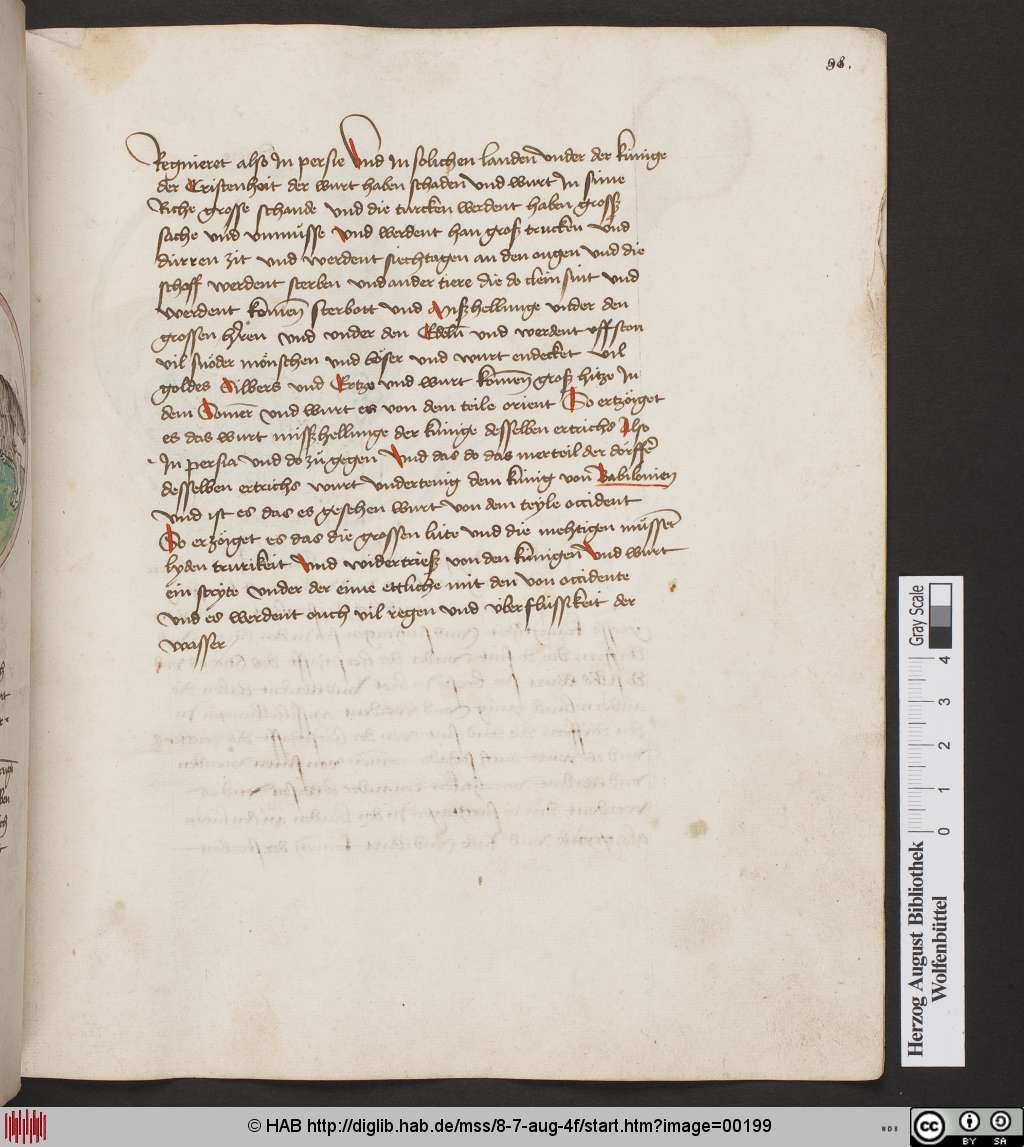 98.
Regnieret also In persie Vnd In solichen landen vnder der künige
der Cristenheit der wurt haben schaden vnd wurt In sime
Riche grosse schande vnd die turcken werdent haben grosß
sache vnd vnmüsse vnd werdent han groß trucken vnd
dürren zit vnd werdent siechtagen an den ougen vnd die
schoff werdent sterben vnd ander tiere die do clein sint vnd
werdent komen sterbott vnd mißhellunge vnder den
grossen hren vnd vnder den Edeln vnd werdent vff ston
vil snöder mönschen vnd böser vnd wurt endecket vil
goldes Silbers vnd Ertze vnd wurt komen groß hitze In
dem Somer vnd wurt es von dem teile orient So ertzöiget
es das wurt mißhellunge der künige desselben ertrichs Also
In persia vnd do zü gegen Vnd das do das merteil der dörffer
desselben ertrichs wurt vndertenig dem künig von Babilonien
Vnd ist es das es gesehen wurt von dem teyle occident
So erzöiget es das die grossen lüte vnd die mehtigen müssent
lyden trurikeit Vnd widertrieß von den künigen Vnd wurt
ein stryte vnder der eime ettliche mit den von occidente
Vnd es werdent ouch vil regen vnd überflüssikeit der
wasser
Gray Scale
0 1 2 3 4
Herzog August Bibliothek
Wolfenbüttel
© HAB http://diglib.hab.de/mss/8-7-aug-4f/start.htm?image=00199
WDB
cc BY SA